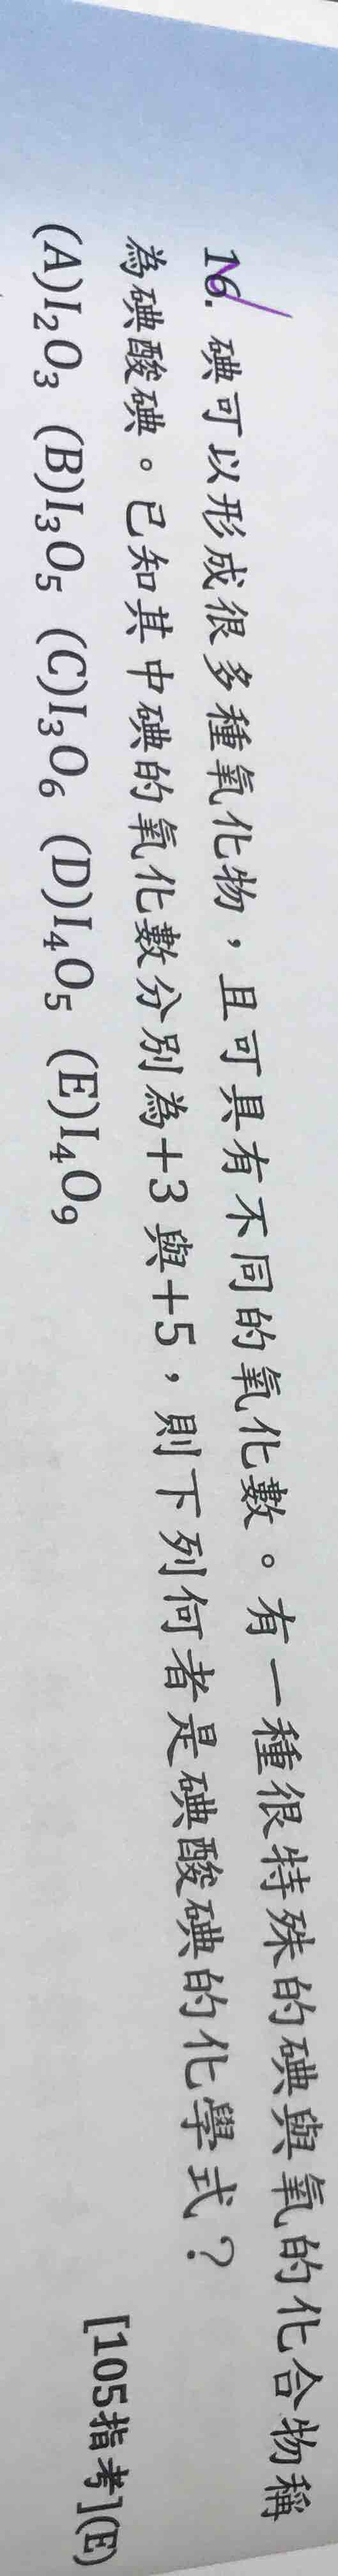 16. 碘可以形成很多種氧化物，且可具有不同的氧化數。有一種很特殊的碘與氧的化合物稱
為碘酸碘。已知其中碘的氧化數分別為+3與+5，則下列何者是碘酸碘的化學式？
(A)I₂O₃ (B)I₃O₅ (C)I₃O₆ (D)I₄O₅ (E)I₄O₉
[105指考](E)